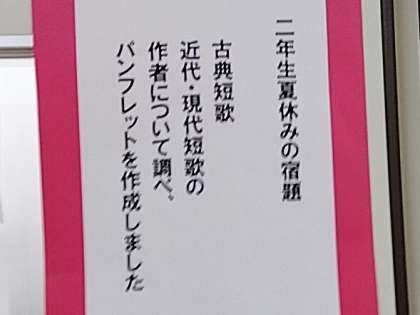 二年生夏休みの宿題
古典短歌
近代・現代短歌の
作者について調べ、
パンフレットを作成しました